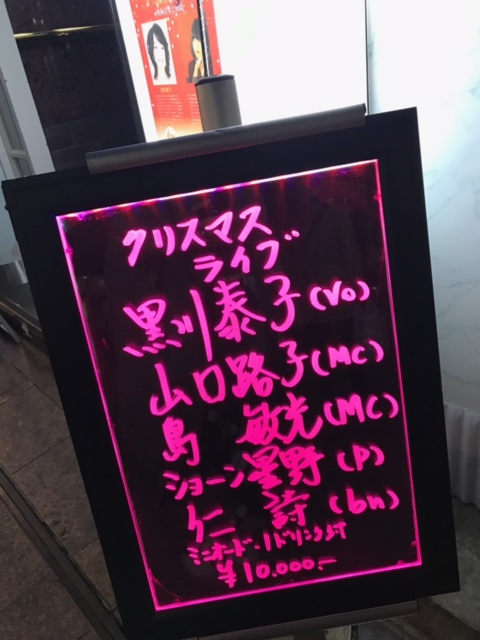 クリスマス
ライブ
黒川泰子(Vo)
山口路子(MC)
島 敏光(MC)
ショーン星野(P)
仁 詩(bn)
ミニオードー1ドリンク付
¥10.000.-